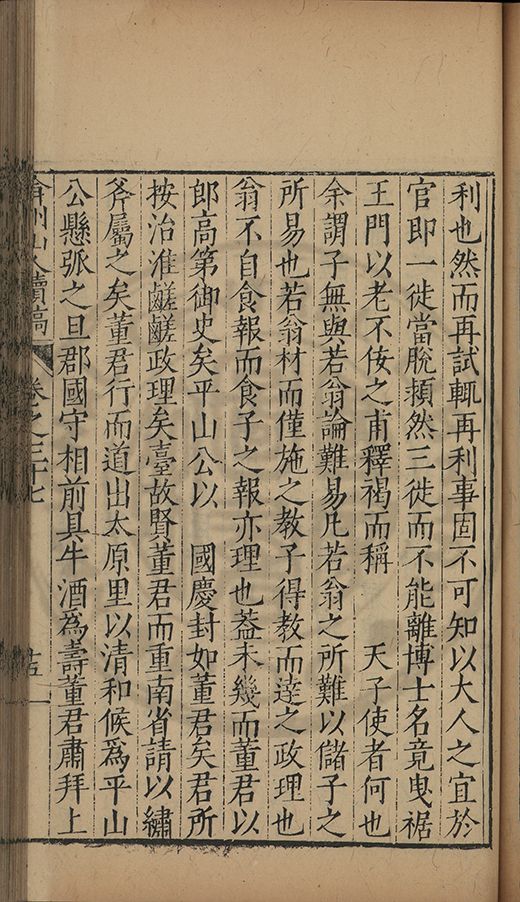 利也然而再試輒再利事固不可知以大人之宜於
官即一徙當脫頮然三徙而不能離博士名竟曳裾
王門以老不佞之甫釋褐而稱　天子使者何也
余謂子無與若翁論難易凡若翁之所難以儲子之
所易也若翁材而僅施之教子得教而達之政理也
翁不自食報而食子之報亦理也蓋未幾而董君以
郎高第御史矣平山公以　國慶封如董君矣君所
按治淮鹺鹺政理矣臺故賢董君而重南省請以繡
斧屬之矣董君行而道出太原里以清和候為平山
公懸弧之旦郡國守相前具牛酒為壽董君肅拜上
弇州山人續稿
卷之三十七